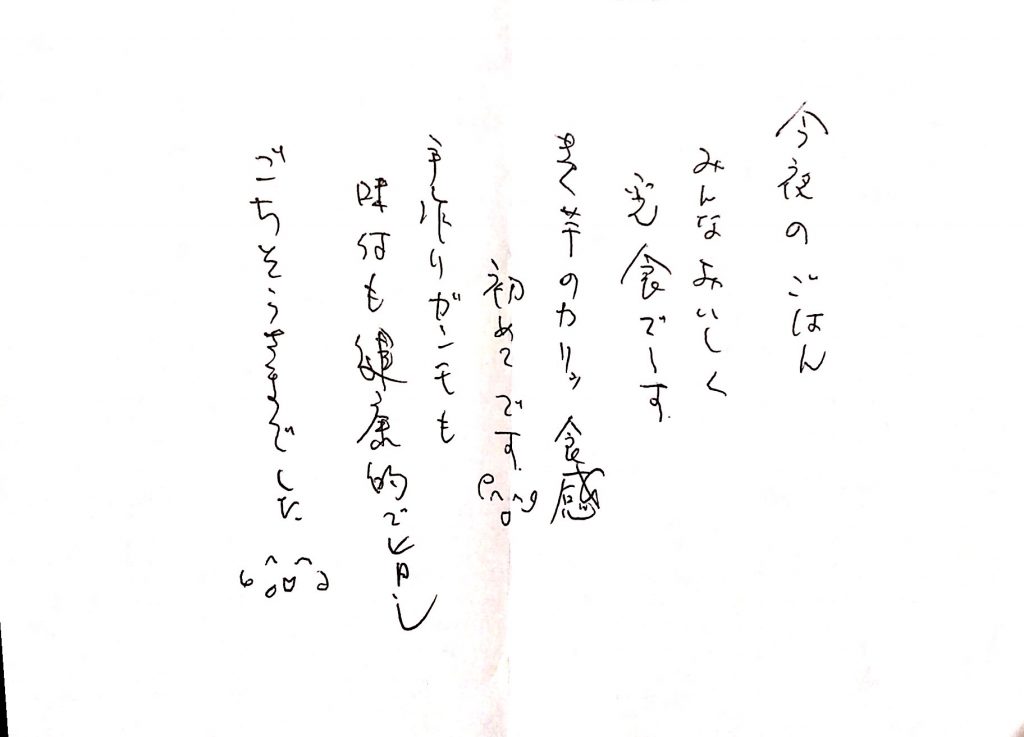 今夜のごはん
みんなおいしく
完食でーす.
長く芋のカリッ食感
初めてです.
手作りがンモも
味付も健康的で旨し
ごちそうさまでした